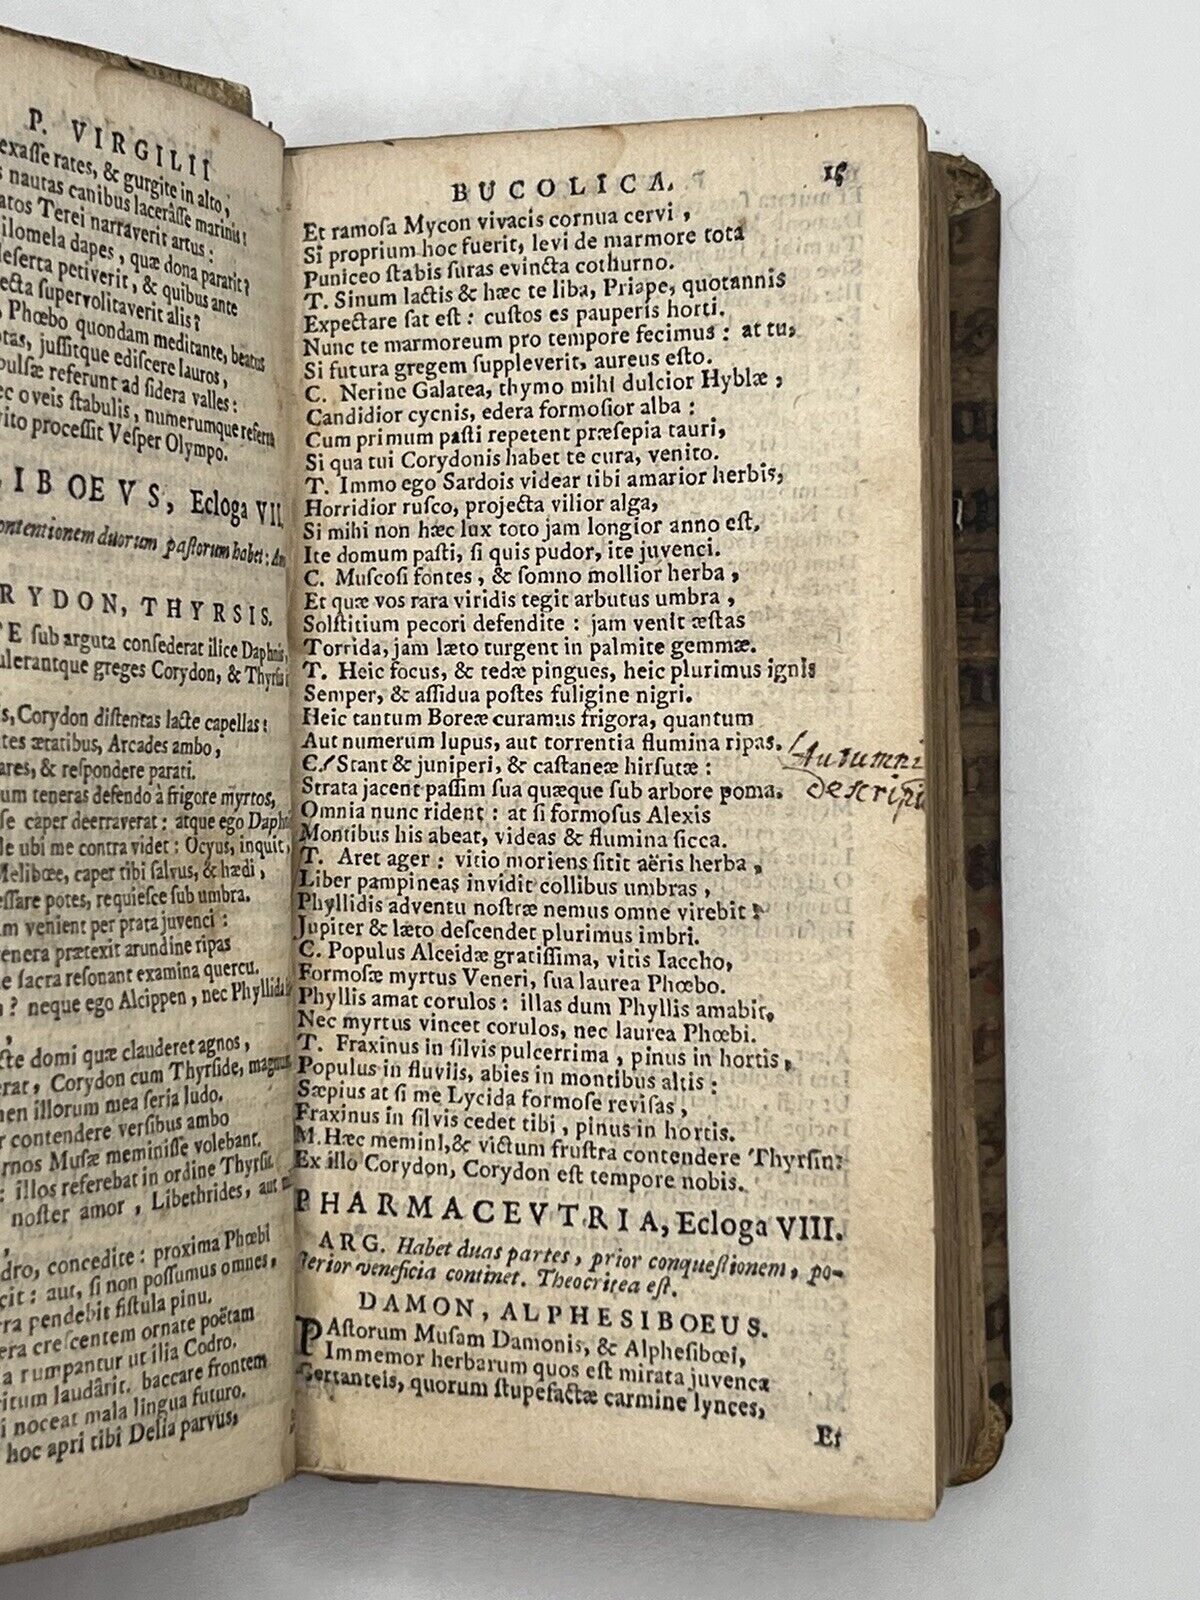 P. VIRGILII
exaſſe rates, & gurgite in alto,
nautas canibus laceráſſe marinis?
Terei narraverit artus:
dapes, quæ dona pararit?
deſerta petiverit, & quibus ante
ſupervolitaverit alis?
Phœbo quondam meditante, beatus
juſſitque ediſcere lauros,
referunt ad ſidera valles:
oveis ſtabulis, numerumque referre
proceſſit Veſper Olympo.
IBOEVS, Ecloga VII.
contentionem duorum paſtorum habet:
RYDON, THYRSIS.
ſub arguta conſederat ilice Daphnis,
greges Corydon, & Thyrſis
Corydon diſtentas lacte capellas:
ætatibus, Arcades ambo,
& reſpondere parati.
teneras defendo à frigore myrtos,
caper deerraverat: atque ego Daphni
ubi me contra videt: Ocyus, inquit,
Melibœe, caper tibi ſalvus, & hædi,
potes, requieſce ſub umbra.
venient per prata juvenci:
prætexit arundine ripas
ſacra reſonant examina quercu.
? neque ego Alcippen, nec Phyllida
domi quæ clauderet agnos,
Corydon cum Thyrſide, magnum
illorum mea ſeria ludo.
contendere verſibus ambo
Muſæ meminiſſe volebant.
illos referebat in ordine Thyrſis.
noſter amor, Libethrides, aut
concedite: proxima Phœbi
aut, ſi non poſſumus omnes,
pendebit fiſtula pinu.
creſcentem ornate poëtam
rumpantur ut ilia Codro.
laudârit, baccare frontem
noceat mala lingua futuro.
hoc apri tibi Delia parvus,
BUCOLICA. 15
Et ramoſa Mycon vivacis cornua cervi,
Si proprium hoc fuerit, levi de marmore tota
Puniceo ſtabis ſuras evincta cothurno.
T. Sinum lactis & hæc te liba, Priape, quotannis
Expectare ſat eſt: cuſtos es pauperis horti.
Nunc te marmoreum pro tempore fecimus: at tu,
Si futura gregem ſuppleverit, aureus eſto.
C. Nerine Galatea, thymo mihi dulcior Hyblæ,
Candidior cycnis, edera formoſior alba:
Cum primum paſti repetent præſepia tauri,
Si qua tui Corydonis habet te cura, venito.
T. Immo ego Sardois videar tibi amarior herbis,
Horridior ruſco, projecta vilior alga,
Si mihi non hæc lux toto jam longior anno eſt.
Ite domum paſti, ſi quis pudor, ite juvenci.
C. Muſcoſi fontes, & ſomno mollior herba,
Et quæ vos rara viridis tegit arbutus umbra,
Solſtitium pecori defendite: jam venit æſtas
Torrida, jam læto turgent in palmite gemmæ.
T. Heic focus, & tedæ pingues, heic plurimus ignis
Semper, & aſſidua poſtes fuligine nigri.
Heic tantum Boreæ curamus frigora, quantum
Aut numerum lupus, aut torrentia flumina ripas.
C. Stant & juniperi, & caſtaneæ hirſutæ:
Autumni
Strata jacent paſſim ſua quæque ſub arbore poma.
descripti
Omnia nunc rident: at ſi formoſus Alexis
Montibus his abeat, videas & flumina ſicca.
T. Aret ager: vitio moriens ſitit aëris herba,
Liber pampineas invidit collibus umbras,
Phyllidis adventu noſtræ nemus omne virebit:
Jupiter & læto deſcendet plurimus imbri.
C. Populus Alceidæ gratiſſima, vitis Iaccho,
Formoſæ myrtus Veneri, ſua laurea Phœbo.
Phyllis amat corulos: illas dum Phyllis amabit,
Nec myrtus vincet corulos, nec laurea Phœbi.
T. Fraxinus in ſilvis pulcerrima, pinus in hortis,
Populus in fluviis, abies in montibus altis:
Sæpius at ſi me Lycida formoſe reviſas,
Fraxinus in ſilvis cedet tibi, pinus in hortis.
M. Hæc memini, & victum fruſtra contendere Thyrſin:
Ex illo Corydon, Corydon eſt tempore nobis.
PHARMACEVTRIA, Ecloga VIII.
ARG. Habet duas partes, prior conqueſtionem, po-
ſterior veneficia continet. Theocritea eſt.
DAMON, ALPHESIBOEUS.
PAſtorum Muſam Damonis, & Alpheſibœi,
Immemor herbarum quos eſt mirata juvenca
Certanteis, quorum ſtupefactæ carmine lynces,
Et